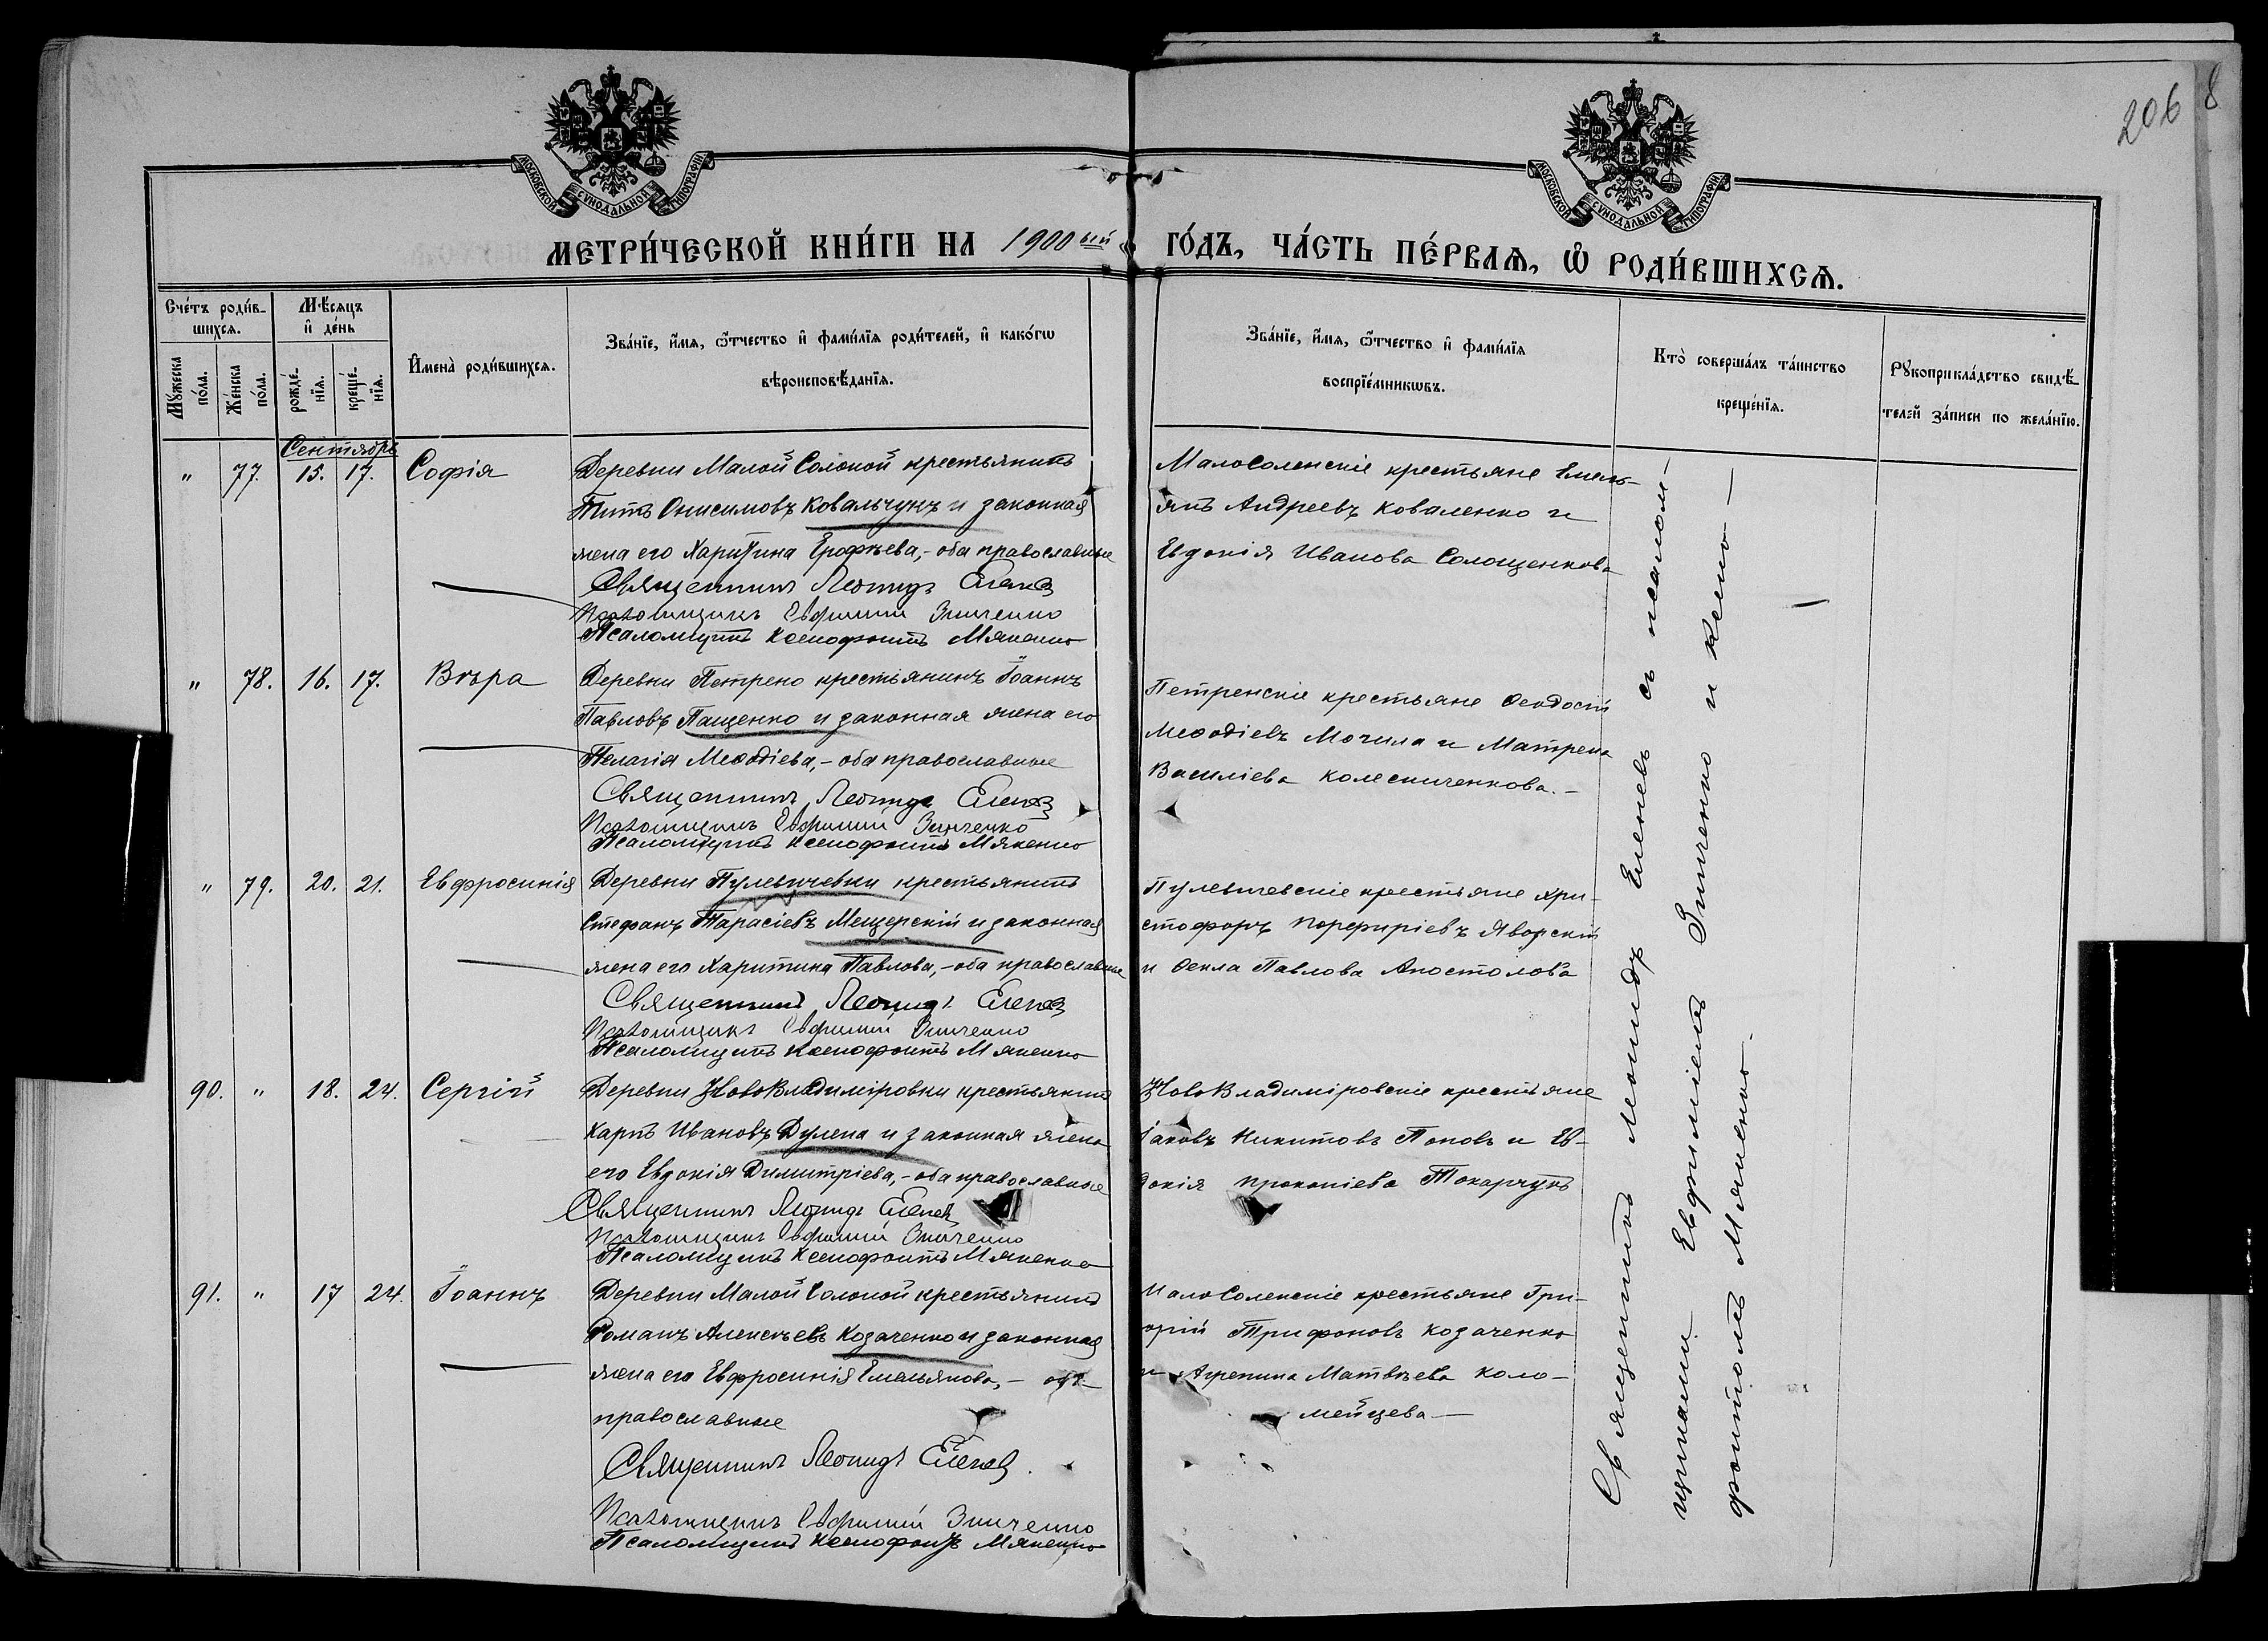 206
8
МОСКОВСКОЙ СУНОДАЛЬНОЙ ТИПОГРАФІИ
МОСКОВСКОЙ СУНОДАЛЬНОЙ ТИПОГРАФІИ
МЕТРИ́ЧЕСКОЙ КНИ́ГИ НА 1900ый ГО́ДЪ, ЧА́СТЬ ПЕ́РВАѦ, Ѽ РОДИ́ВШИХСѦ.
Сче́тъ роди́в-
шихсѧ.
Мѣ́сѧцъ
и҆ де́нь
Мꙋжеска по́ла.
Же́нска по́ла.
рожде́-
нїѧ.
креще́-
нїѧ.
И҆мена̀ роди́вшихсѧ.
Зва́нїе, и҆́мѧ, ѻ҆́тчество и҆ фами́лїѧ роди́телей, и҆ како́гѡ
вѣроисповѣ́данїѧ.
Зва́нїе, и҆́мѧ, ѻ҆́тчество и҆ фами́лїѧ
воспрїе́мникѡвъ.
Кто̀ соверша́лъ та́инство
креще́нїѧ.
Рꙋкоприкла́дство свидѣ́-
телей за́писи по жела́нїю.
Сентябрь
" 77. 15. 17. Софія
Деревни Малой Солоной крестьянинъ
Титъ Онисимовъ Ковальчукъ и законная
жена его Харитина Ерофѣева,- оба православные
Священникъ Леонидъ Еленевъ
Псаломщикъ Евфимій Зинченко
Псаломщикъ Ксенофонтъ Мякенко
МалоСоленскіе крестьяне Емель-
янъ Андреевъ Коваленко и
Евдокія Иванова Солощенкова
" 78. 16. 17. Вѣра
Деревни Петрено крестьянинъ Іоаннъ
Павловъ Пащенко и законная жена его
Пелагія Меѳодіева,- оба православные
Священникъ Леонидъ Еленевъ
Псаломщикъ Евфимій Зинченко
Псаломщикъ Ксенофонтъ Мякенко
Петренскіе крестьяне Ѳеодосій
Меѳодіевъ Могила и Матрена
Василіева Колесниченкова.-
" 79. 20. 21. Евфросинія
Деревни Пулевичевки крестьянинъ
Стефанъ Тарасіевъ Мещерскій и законная
жена его Харитина Павлова,- оба православные
Священникъ Леонидъ Еленевъ
Псаломщикъ Евфимій Зинченко
Псаломщикъ Ксенофонтъ Мякенко
Пулевичевскіе крестьяне Хри-
стофоръ Порфиріевъ Яворскій
и Ѳекла Павлова Апостолова
90. " 18. 24. Сергій
Деревни НовоВладиміровки крестьянинъ
Карпъ Ивановъ Дулепа и законная жена
его Евдокія Димитріева,- оба православные
Священникъ Леонидъ Еленевъ
Псаломщикъ Евфимій Зинченко
Псаломщикъ Ксенофонтъ Мякенко
НовоВладиміровскіе крестьяне
Іаковъ Никитовъ Поповъ и Ев-
докія Прокопіева Токарчукъ
91. " 17 24. Іоаннъ
Деревни Малой Солоной крестьянинъ
Романъ Алексѣевъ Козаченко и законная
жена его Евфросинія Емельянова,- оба
православные
Священникъ Леонидъ Еленевъ
Псаломщикъ Евфимій Зинченко
Псаломщикъ Ксенофонтъ Мякенко
МалоСоленскіе крестьяне Гри-
горій Трифоновъ Козаченко
и Агрепина Матвѣева Коло-
мейцева-
Священникъ Леонидъ Еленевъ съ псалом-
щиками Евфиміемъ Зинченко и Ксено-
фонтомъ Мякенко.